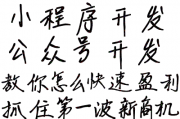 小程序开发
公众号开发
教你怎么快速盈利
抓住第一波新商机